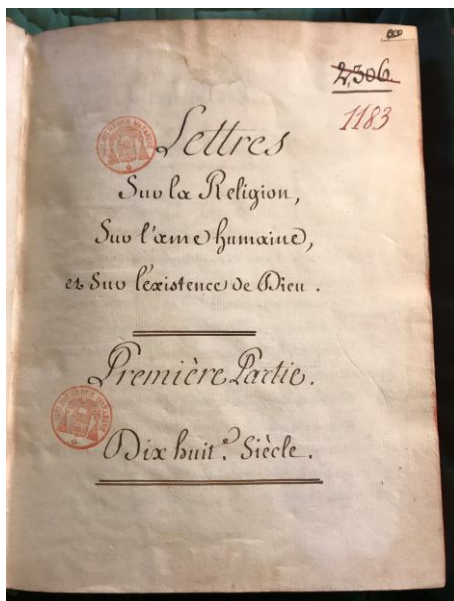 2,306
1183
Lettres
Sur la Religion,
Sur l'ame humaine,
et Sur l'existence de Dieu.
Première Partie.
Dix huit.e Siècle.